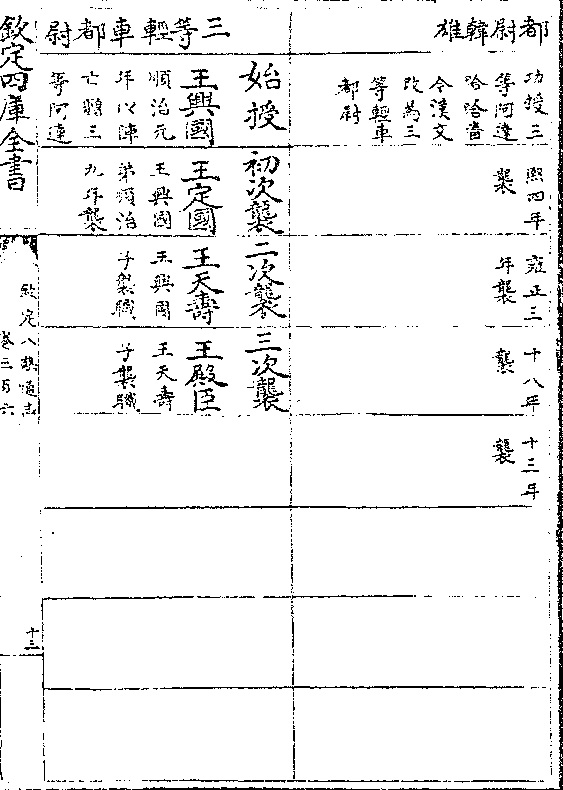 都尉韓雄
功授三
等阿達
哈哈番
今漢文
改為三
等輕車
都尉
熙四年
襲
雍正三
年襲
十八年
襲
十三年
襲
三等輕車都尉
始授
王興國
順治元
年以陣
亡贈三
等阿達
初次襲
王定國
王興國
弟順治
九年襲
二次襲
王天壽
王興國
子襲職
三次襲
王殿臣
王天壽
子襲職
欽定四庫全書
欽定八旗通志
卷三百六
十三